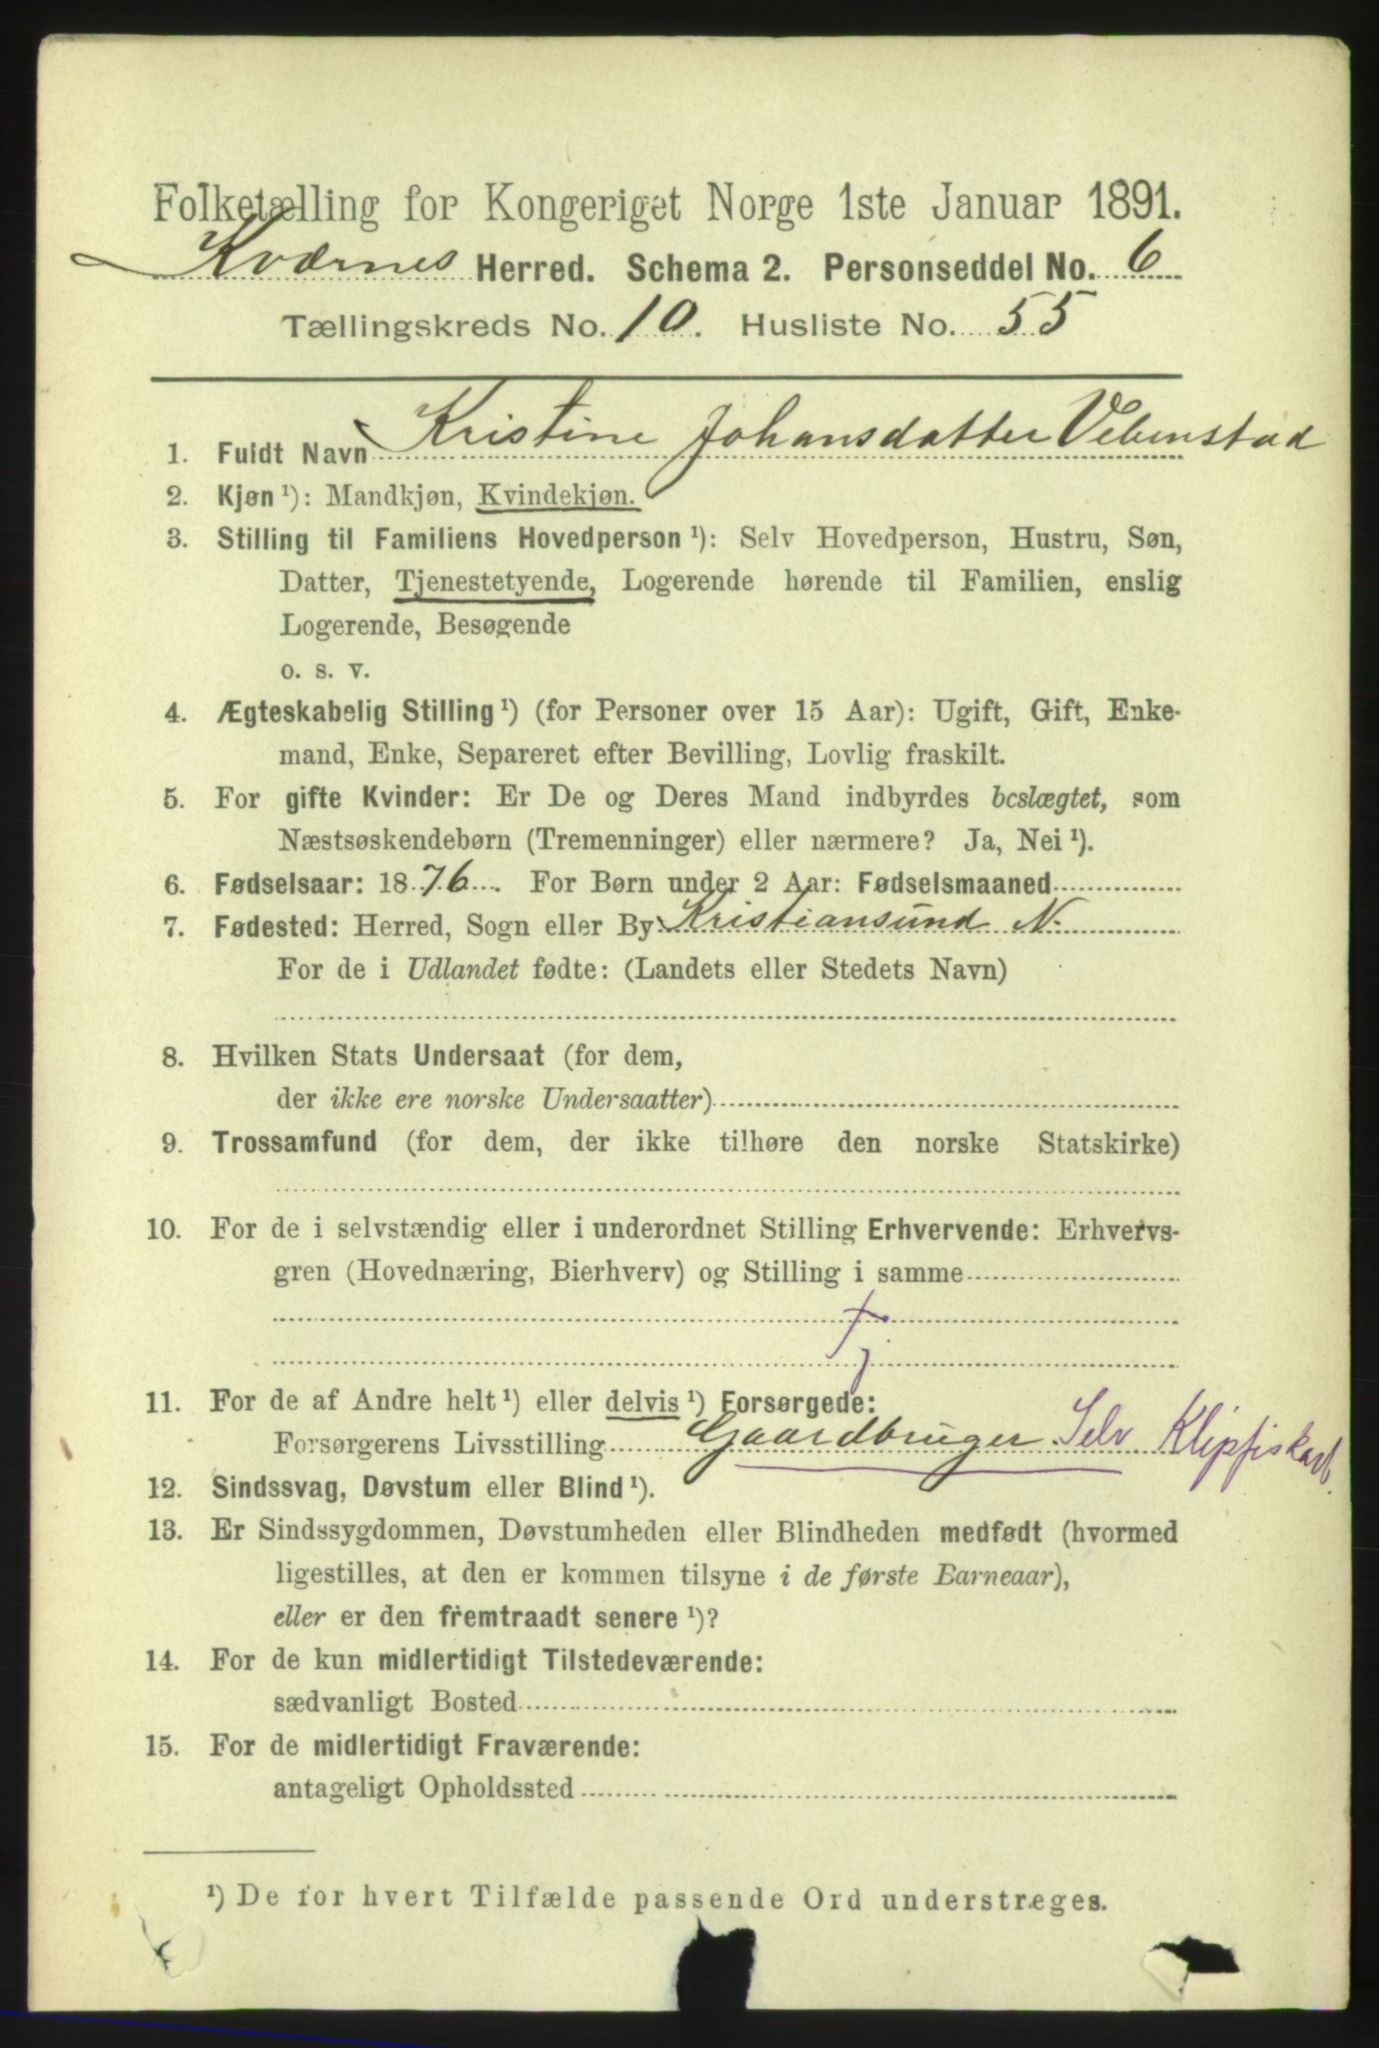 Folketælling for Kongeriget Norge 1ste Januar 1891.
Kværnes Herred. Schema 2. Personseddel No. 6
Tællingskreds No. 10. Husliste No. 55
1. Fuldt Navn Kristine Johansdatter Vebenstad
2. Kjøn ¹): Mandkjøn, Kvindekjøn.
3. Stilling til Familiens Hovedperson ¹): Selv Hovedperson, Hustru, Søn,
Datter, Tjenestetyende, Logerende hørende til Familien, enslig
Logerende, Besøgende
o. s. v.
4. Ægteskabelig Stilling ¹) (for Personer over 15 Aar): Ugift, Gift, Enke-
mand, Enke, Separeret efter Bevilling, Lovlig fraskilt.
5. For gifte Kvinder: Er De og Deres Mand indbyrdes beslægtet, som
Næstsøskendebørn (Tremenninger) eller nærmere? Ja, Nei ¹).
6. Fødselsaar: 1876. For Børn under 2 Aar: Fødselsmaaned
7. Fødested: Herred, Sogn eller By Kristiansund N.
For de i Udlandet fødte: (Landets eller Stedets Navn)
8. Hvilken Stats Undersaat (for dem,
der ikke ere norske Undersaatter)
9. Trossamfund (for dem, der ikke tilhøre den norske Statskirke)
10. For de i selvstændig eller i underordnet Stilling Erhvervende: Erhvervs-
gren (Hovednæring, Bierhverv) og Stilling i samme
11. For de af Andre helt ¹) eller delvis ¹) Forsørgede:
Forsørgerens Livsstilling Gaardbruger Selv Klipfiskarb.
12. Sindssvag, Døvstum eller Blind ¹).
13. Er Sindssygdommen, Døvstumheden eller Blindheden medfødt (hvormed
ligestilles, at den er kommen tilsyne i de første Barneaar),
eller er den fremtraadt senere ¹)?
14. For de kun midlertidigt Tilstedeværende:
sædvanligt Bosted
15. For de midlertidigt Fraværende:
antageligt Opholdssted
¹) De for hvert Tilfælde passende Ord understreges.